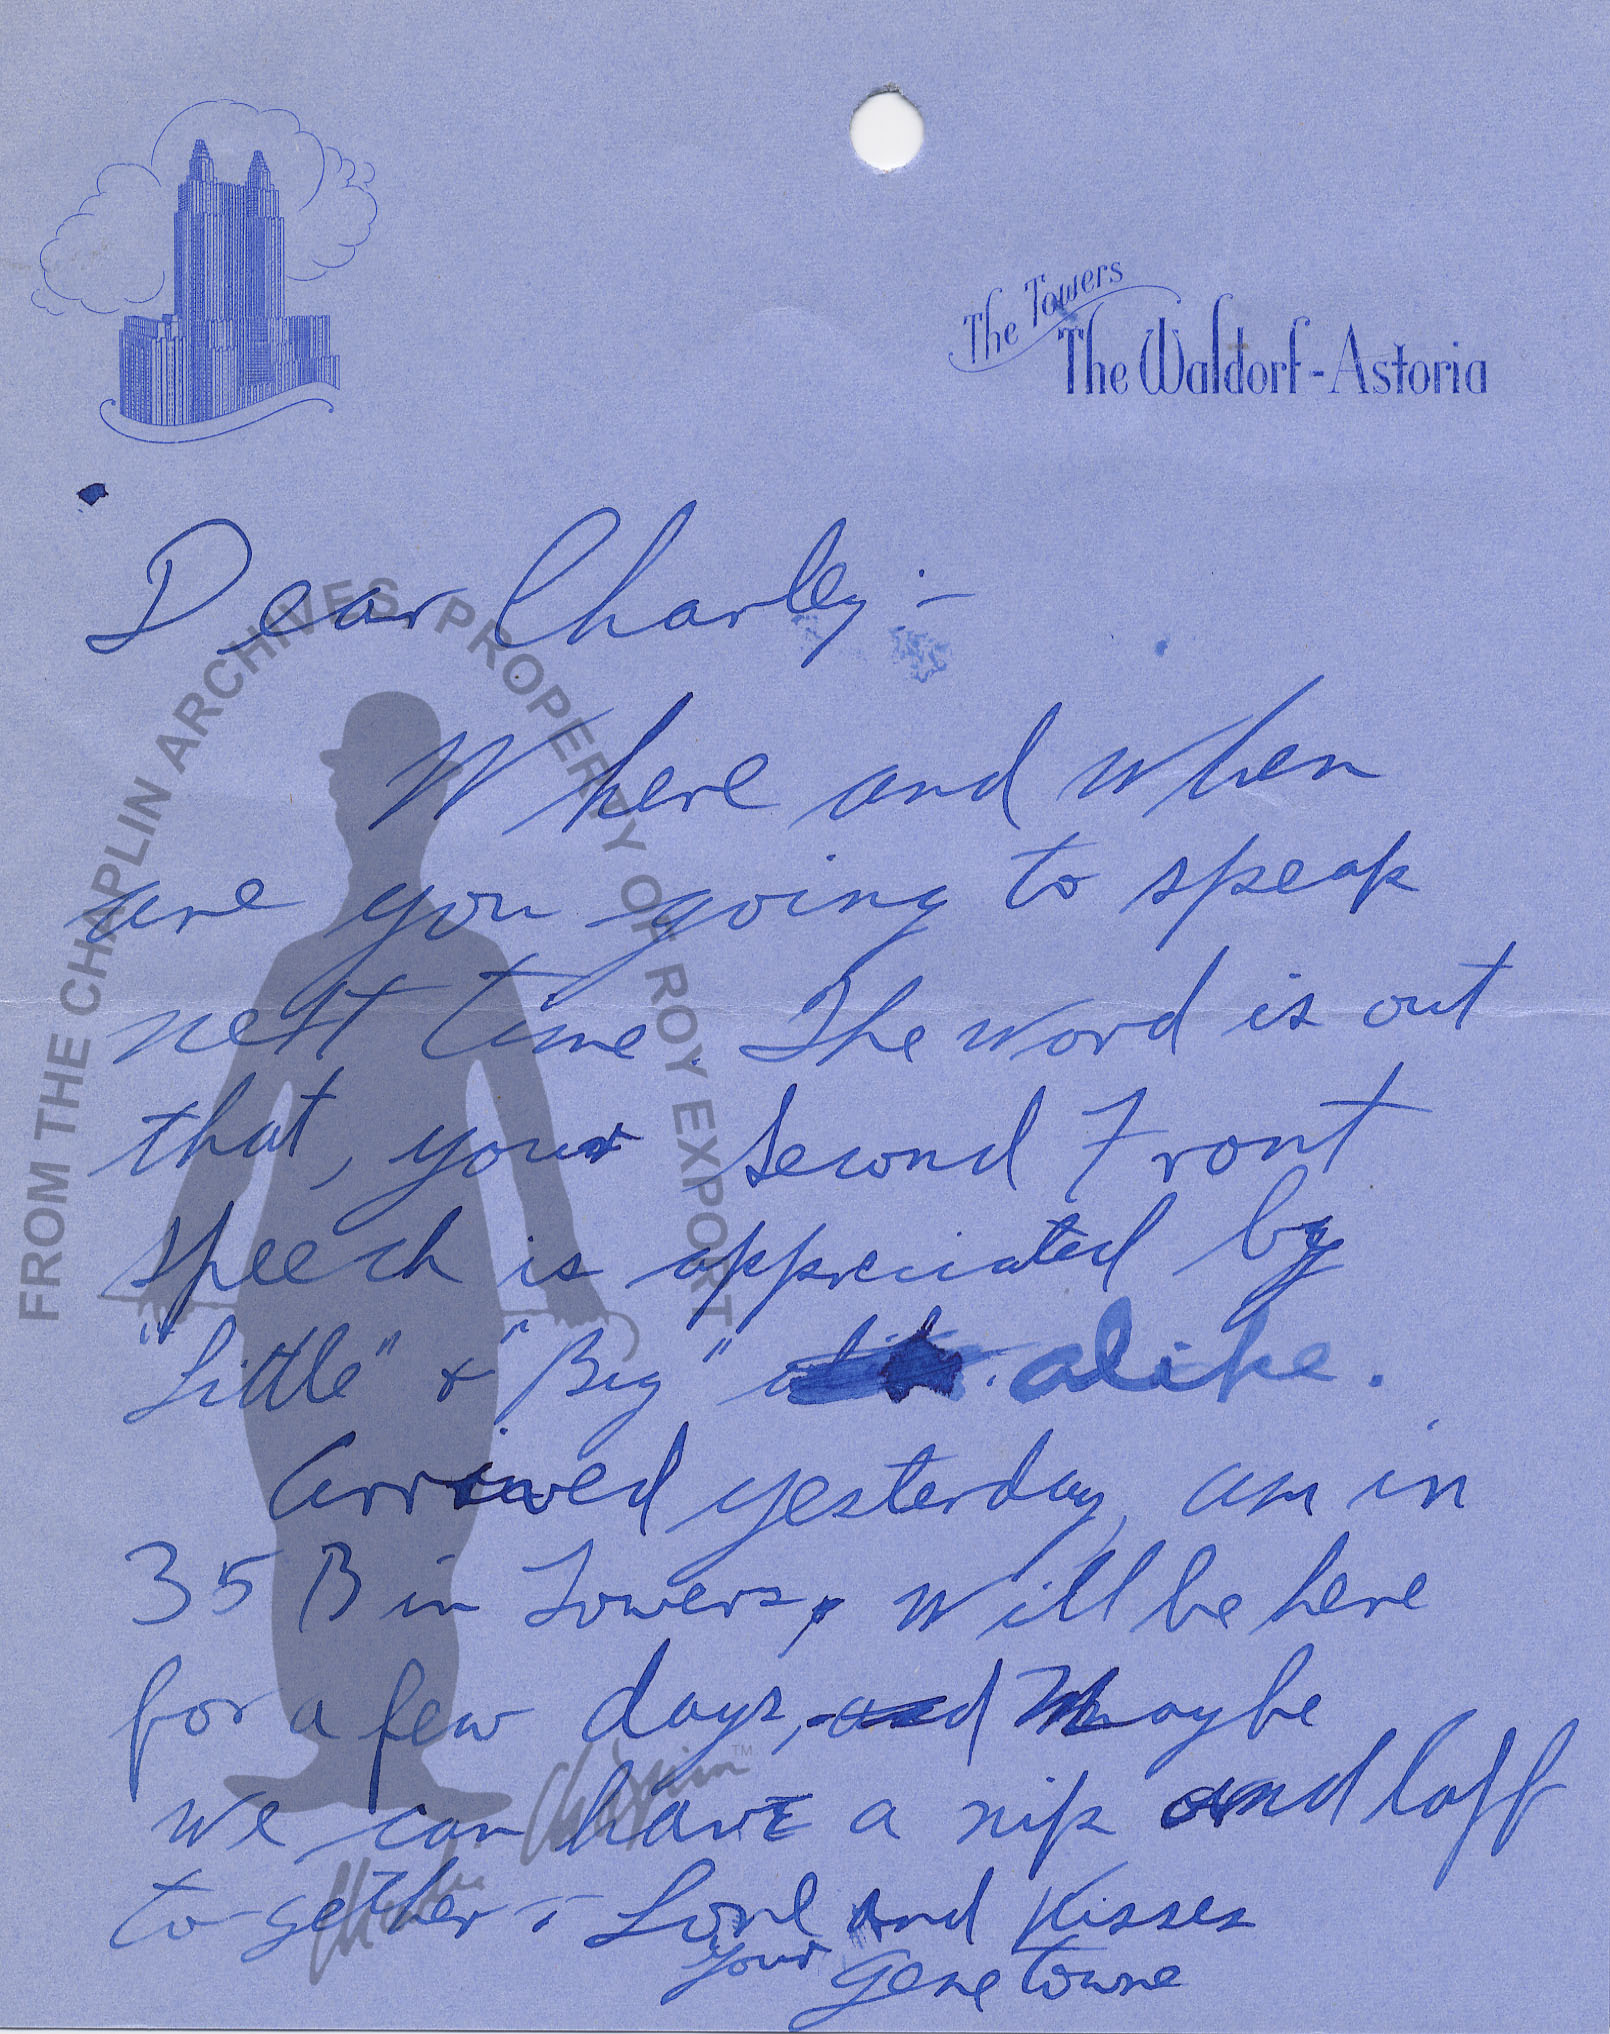 The Towers
The Waldorf-Astoria
Dear Charley :-
Where and when
are you going to speak
next time. The word is out
that, your Second Front
speech is appreciated by
"Little" & "Big" alike.
Arrived yesterday, am in
35 B in Towers, will be here
for a few days, and Maybe
we can have a nip and laff
together :- Love and Kisses
your Gene Towne
FROM THE CHAPLIN ARCHIVES PROPERTY OF ROY EXPORT
Charlie Chaplin™